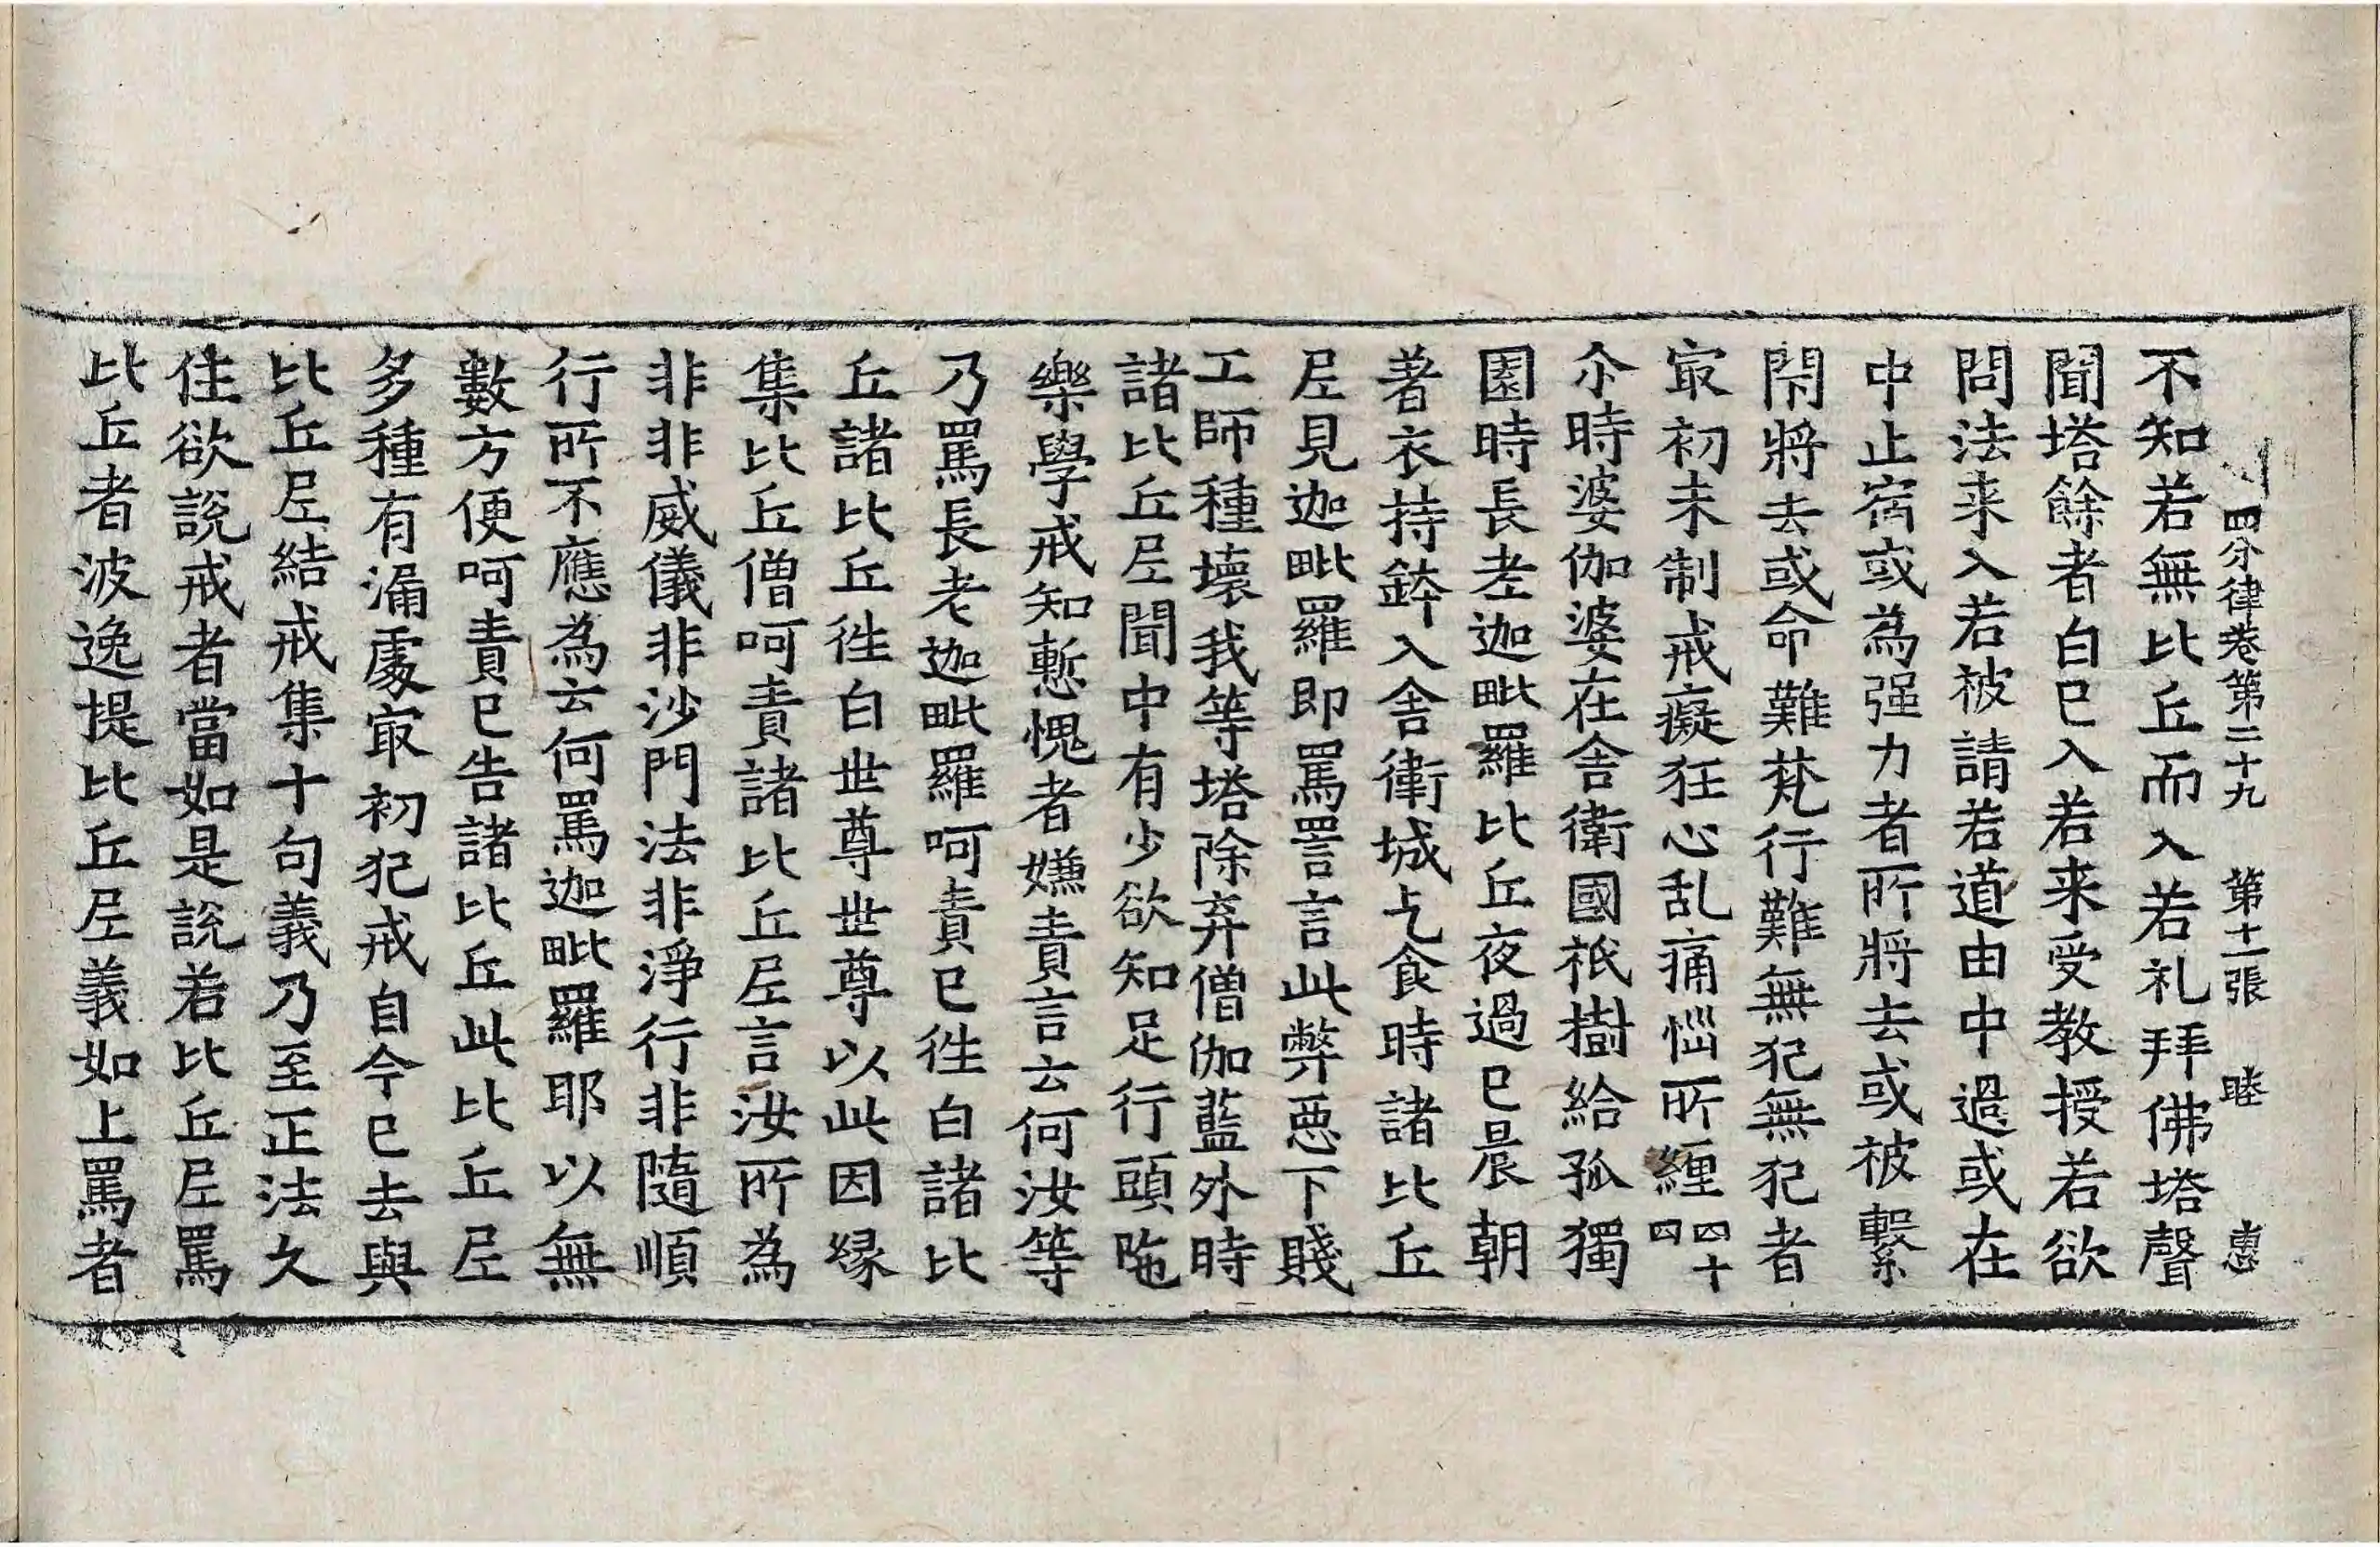 四分律卷第二十九　第十二張　睦　惠
不知若無比丘而入若礼拜佛塔聲
聞塔餘者白已入若来受教授若欲
問法来入若被請若道由中過或在
中止宿或為强力者所將去或被繫
閇將去或命難梵行難無犯無犯者
㝡初未制戒癡狂心乱痛惱所纏四十四
尒時婆伽婆在舍衛國祇樹給孤獨
園時長老迦毗羅比丘夜過已晨朝
著衣持鉢入舍衛城乞食時諸比丘
尼見迦毗羅即罵詈言此弊惡下賤
工師種壞我等塔除弃僧伽藍外時
諸比丘尼聞中有少欲知足行頭陁
樂學戒知慙愧者嫌責言云何汝等
乃罵長老迦毗羅呵責已徃白諸比
丘諸比丘徃白世尊世尊以此因縁
集比丘僧呵責諸比丘尼言汝所為
非非威儀非沙門法非淨行非隨順
行所不應為云何罵迦毗羅耶以無
數方便呵責已告諸比丘此比丘尼
多種有漏處㝡初犯戒自今已去與
比丘尼結戒集十句義乃至正法久
住欲說戒者當如是說若比丘尼罵
比丘者波逸提比丘尼義如上罵者